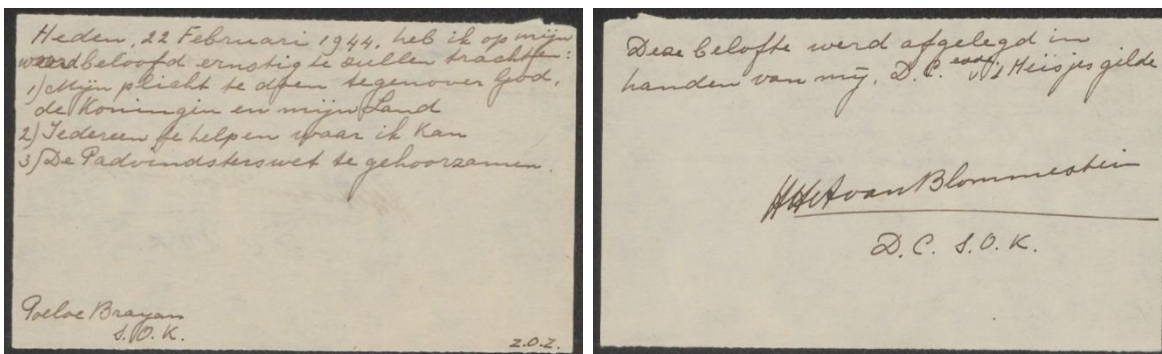 Heden, 22 Februari 1944, heb ik op mijn
woord beloofd ernstig te zullen trachten:
1) Mijn plicht te doen tegenover God,
de Koningin en mijn Land
2) Iedereen te helpen waar ik kan
3) De Padvindsterswet te gehoorzamen.
Poeloe Brayan
S.O.K.
z.o.z.
Deze belofte werd afgelegd in
handen van mij, D.C. v. 't Meisjesgilde
van Blommestein
D.C. S.O.K.